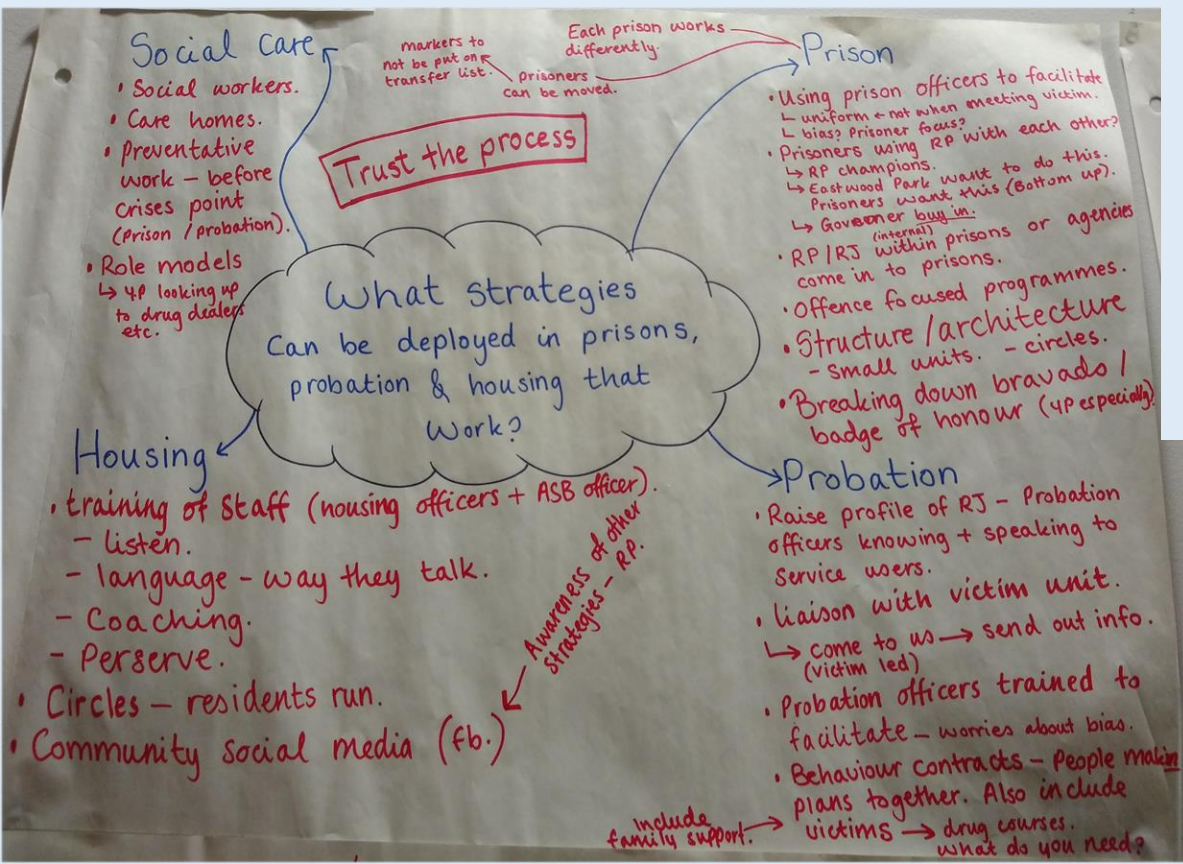 Social care
• Social workers.
• Care homes.
• Preventative
work – before
crises point
(Prison / probation).
• Role models
↳ YP looking up
to drug dealers
etc.
Each prison works
differently.
prisoners
can be moved.
markers to
not be put on
transfer list.
Trust the process
Prison
• Using prison officers to facilitate
↳ uniform ← not when meeting victim.
↳ bias? Prisoner focus?
• Prisoners using RP with each other?
↳ RP champions.
↳ Eastwood Park want to do this.
Prisoners want this (Bottom up).
↳ Governer buy in.
(internal)
• RP/RJ within prisons or agencies
come in to prisons.
• Offence focused programmes.
• Structure / architecture
- small units. - circles.
• Breaking down bravado /
badge of honour (YP especially)
What strategies
Can be deployed in prisons,
probation & housing that
Work?
Housing
• training of staff (housing officers + ASB officer).
- listen.
- language - way they talk.
- Coaching.
- Perserve.
• Circles – residents run.
• Community social media (fb.)
Awareness of other
strategies - RP.
Probation
• Raise profile of RJ – Probation
officers knowing + speaking to
service users.
• liaison with victim unit.
↳ come to us → send out info.
(victim led)
• Probation officers trained to
facilitate – worries about bias.
• Behaviour contracts – People makin
plans together. Also include
victims → drug courses.
what do you need?
include
family support. →